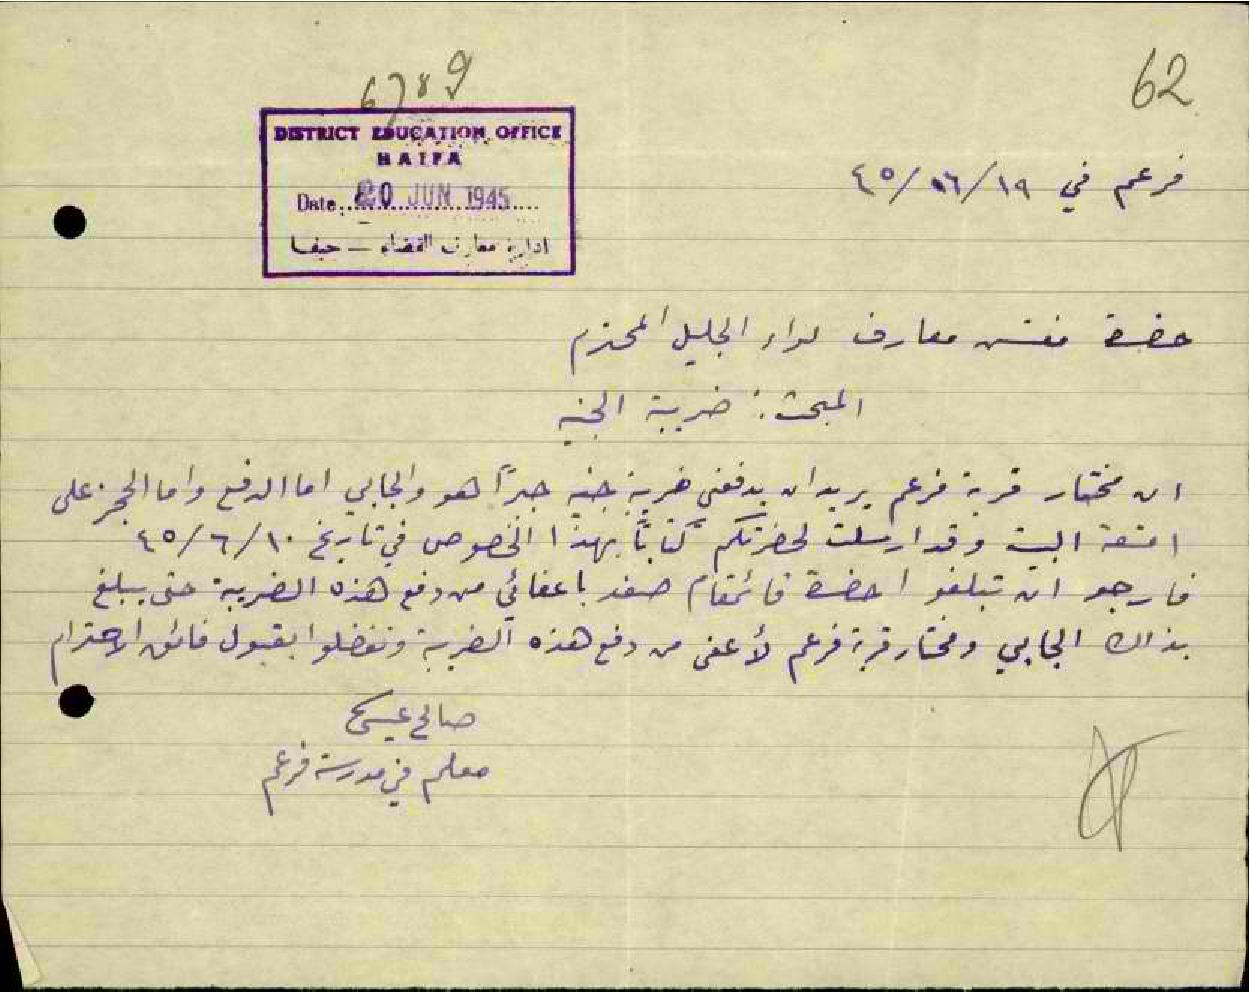 62
6789
DISTRICT EDUCATION OFFICE
HAIFA
Date 20 JUN 1945
ادارة معارف القضاء — حيفا
فرعم في ١٩/٦/٤٥
حضرة مفتش معارف لواء الجليل المحترم
المبحث: ضريبة الجنيه
ان مختار قرية فرعم يريد ان يدفعني ضريبة جنيه جبراً هو والجابي اما الدفع واما الحجز على
امتعة البيت وقد ارسلت لحضرتكم كتاباً بهذا الخصوص في تاريخ ١٠/٦/٤٥
فارجو ان تبلغوا حضرة قائمقام صفد باعفائي من دفع هذه الضريبة حتى يبلغ
بذالك الجابي ومختار قرية فرعم لأعفى من دفع هذه الضريبة وتفضلوا بقبول فائق الاحترام
صالح عيسى
معلم في مدرسة فرعم